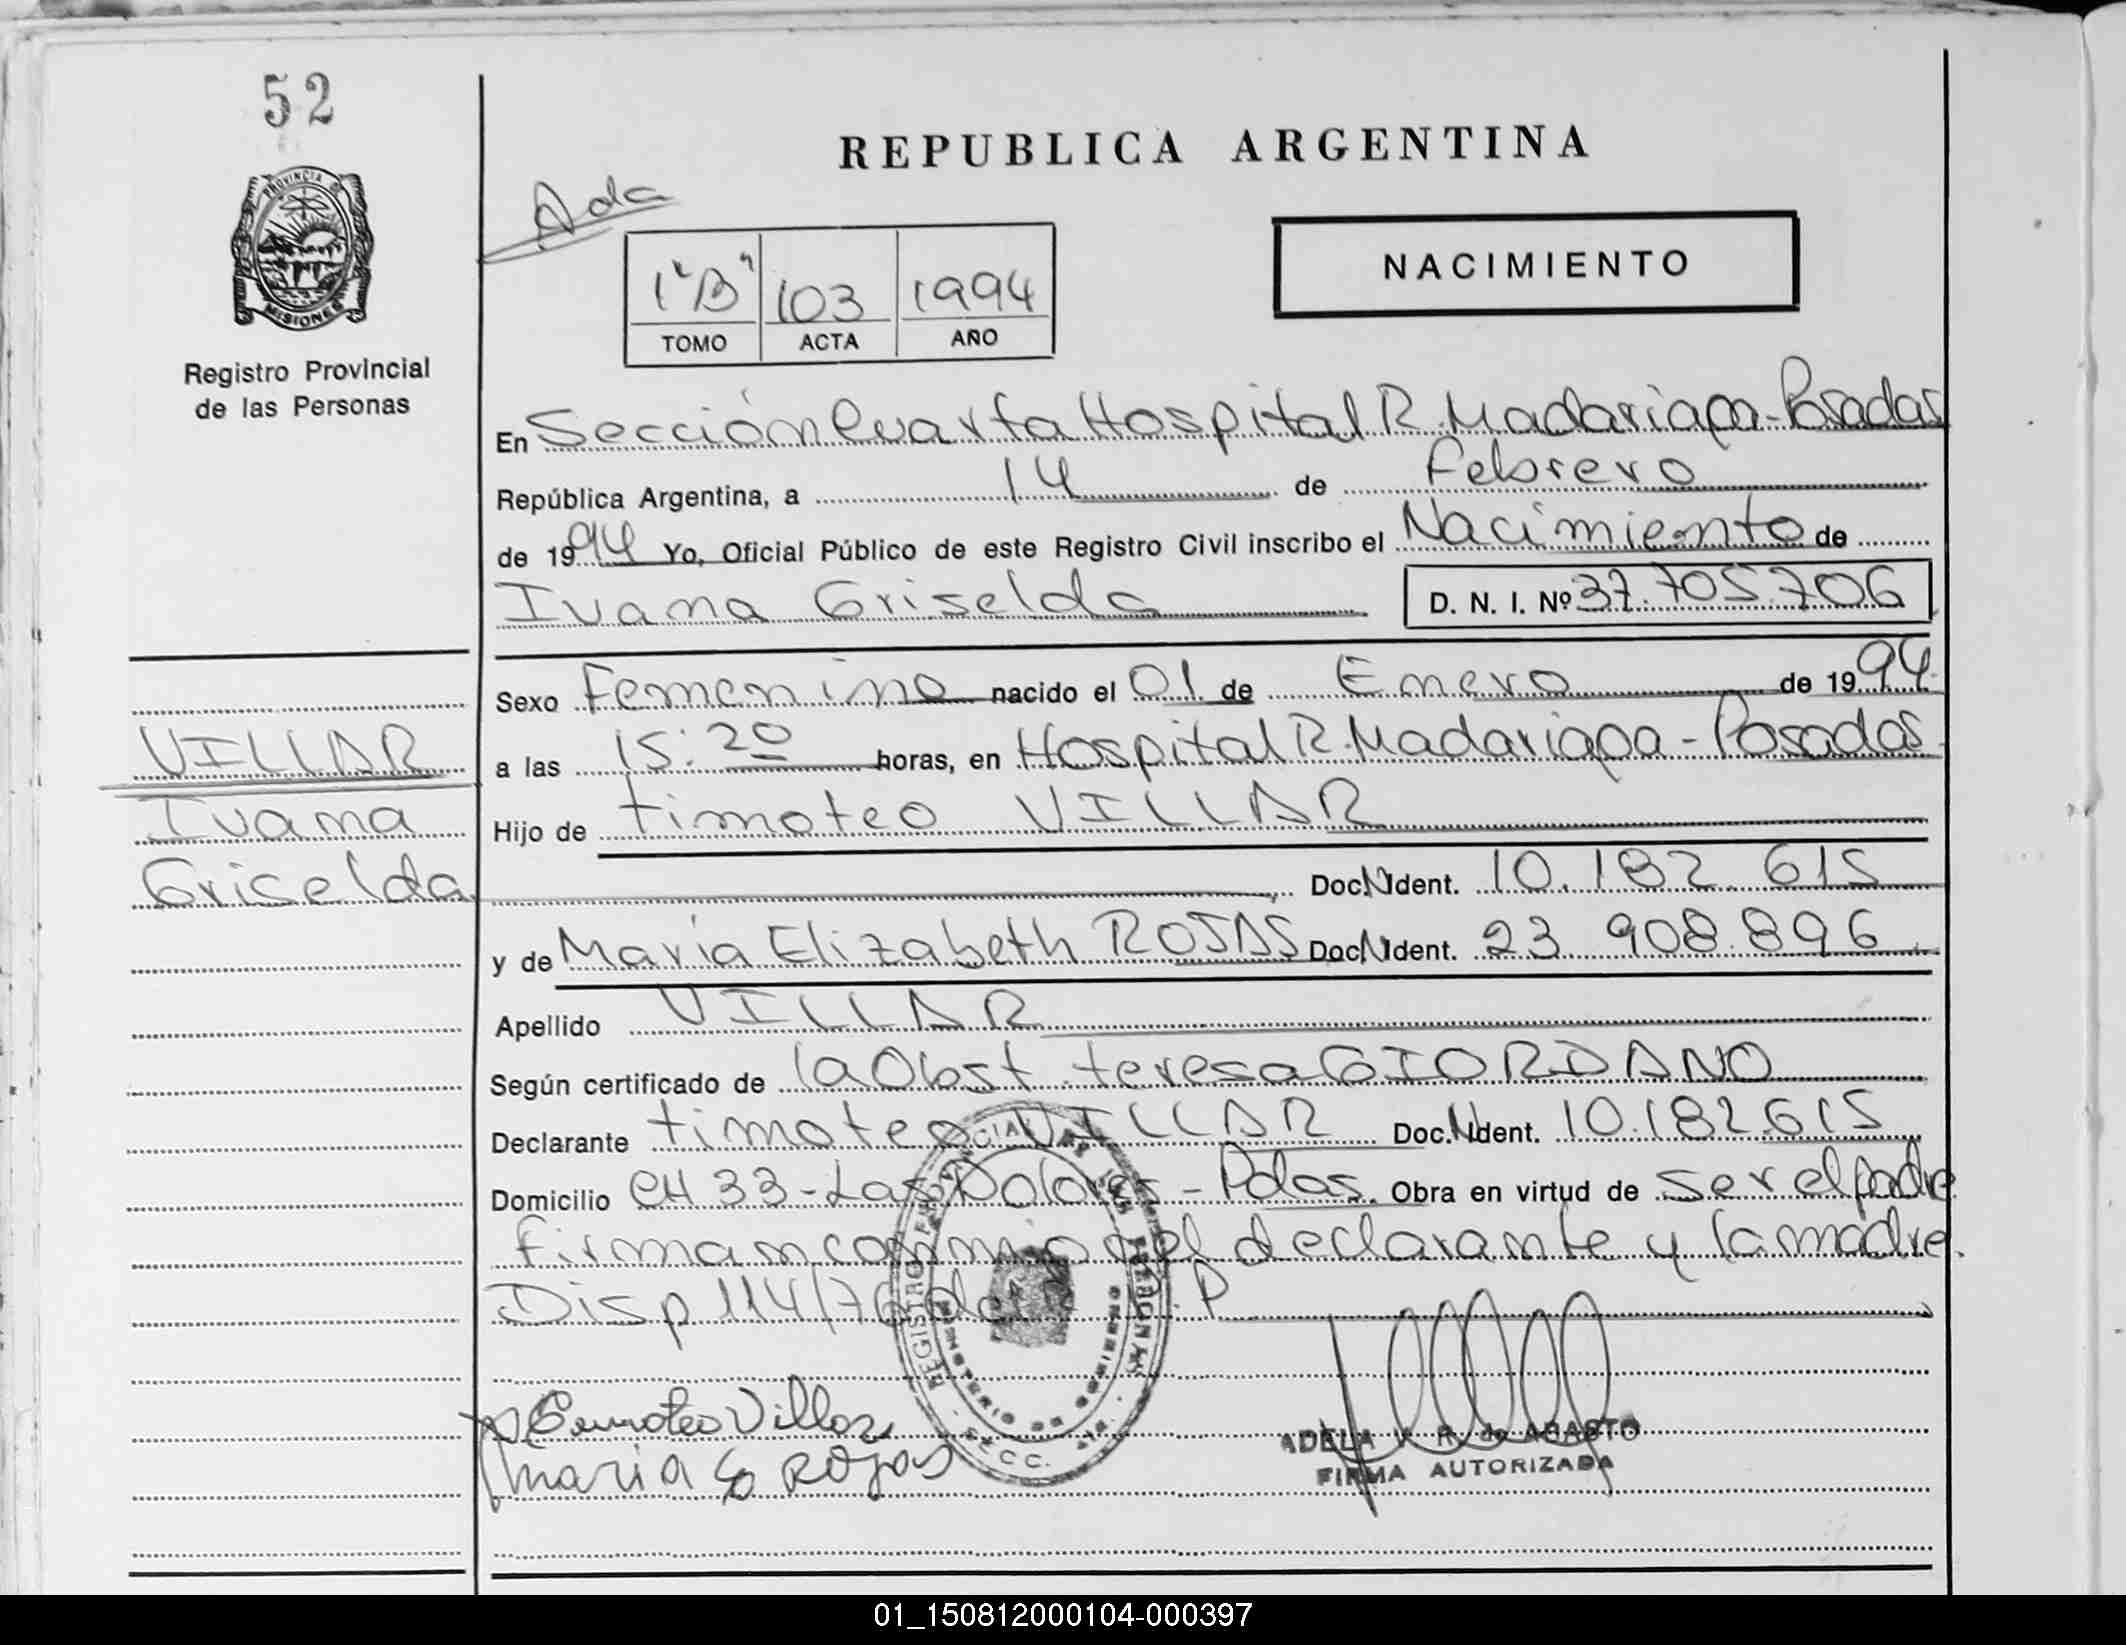 52
PROVINCIA D
MISIONES
Registro Provincial
de las Personas
REPUBLICA ARGENTINA
Ada
NACIMIENTO
1 "B" 103 1994
TOMO ACTA AÑO
En Sección Cuarta Hospital R. Madariaga - Posadas
República Argentina, a 14 de Febrero
de 1994 Yo, Oficial Público de este Registro Civil inscribo el Nacimiento de
Ivana Griselda D. N. I. Nº 37.705.706
Sexo Femenino nacido el 01 de Enero de 1994
a las 15:20 horas, en Hospital R. Madariaga - Posadas
Hijo de timoteo VILLAR
Doc.N Ident. 10.182.615
y de Maria Elizabeth ROJAS Doc.N Ident. 23.908.896
Apellido VILLAR
Según certificado de la Obst. teresa GIORDANO
Declarante timoteo VILLAR Doc.N Ident. 10.182.615
Domicilio CH 33 - Las Dolores - Pdas. Obra en virtud de ser el padre
firman conmigo el declarante y la madre.
Disp 114/76 del R.P.P
VILLAR
Ivana
Griselda
Timoteo Villar
Maria E Rojas
REGISTRO PROVINCIAL DE LAS PERSONAS
MINISTERIO DE GOBIERNO
SECC.
ADELA R de
FIRMA AUTORIZADA
01_150812000104-000397